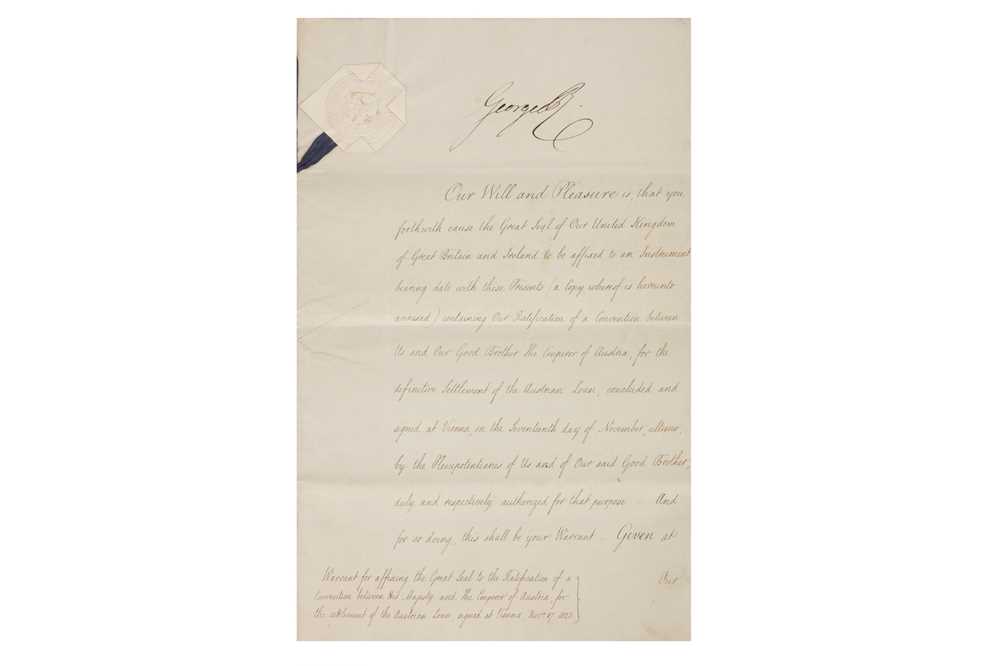 George R.
Our Will and Pleasure is, that you
forthwith cause the Great Seal of Our United Kingdom
of Great Britain and Ireland to be affixed to an Instrument
bearing date with these Presents (a Copy whereof is hereunto
annexed) containing Our Ratification of a Convention between
Us and Our Good Brother The Emperor of Austria, for the
definitive Settlement of the Austrian Loan, concluded and
signed at Vienna, on the Seventeenth day of November, ultimo,
by the Plenipotentiaries of Us and of Our said Good Brother,
duly and respectively authorized for that purpose. And
for so doing, this shall be your Warrant. Given at
Our
Warrant for affixing the Great Seal to the Ratification of a
Convention between His Majesty and The Emperor of Austria, for
the settlement of the Austrian Loan, signed at Vienna Novr. 17. 1823.